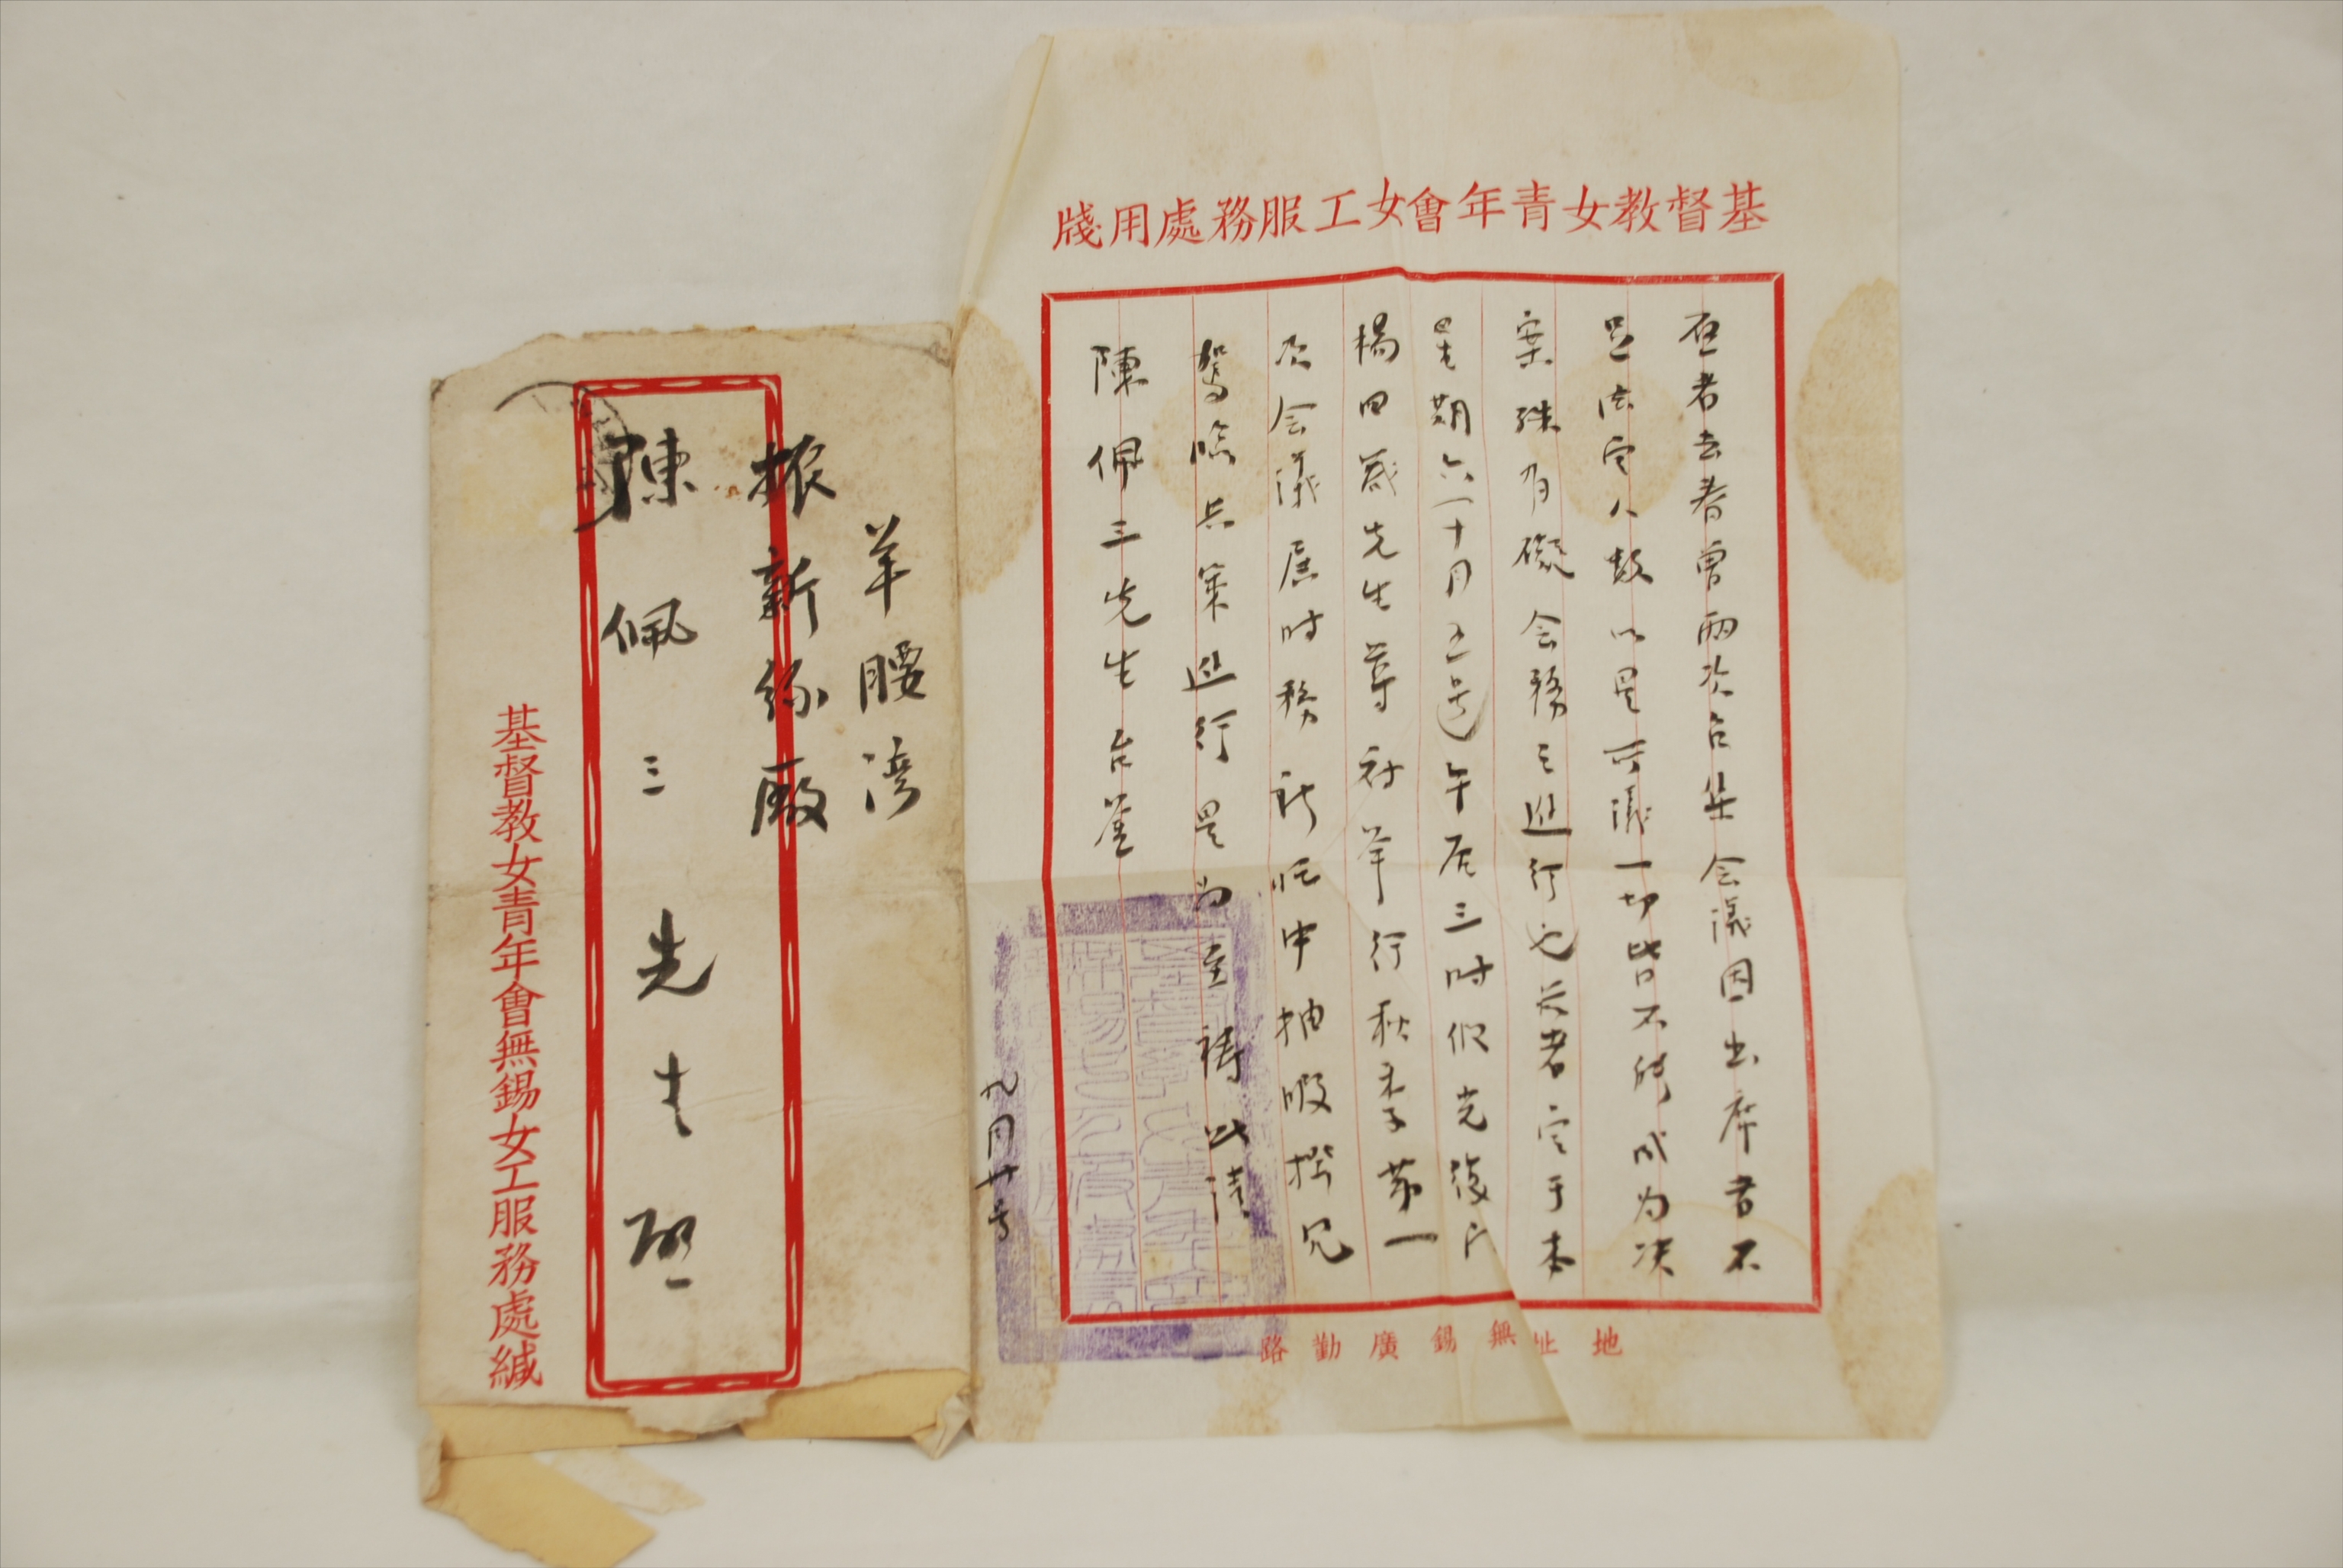 羊腰湾
振新絲廠
陳佩三先生啓
基督教女青年會無錫女工服務處緘
基督教女青年會女工服務處用牋
啓者去春曾兩次召集会議因出席者不
足法定人数以是所議一切皆不能成为决
案殊有礙会務之進行也兹者定于本
星期六(十月五号)午后三时假光復门
楊四箴先生尊府举行秋季第一
次会議届时務祈忙中抽暇撥冗
駕臨共策進行是为至禱此請
陳佩三先生台鉴
九月廿号
地址無錫廣勤路